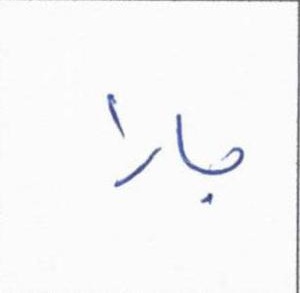 جارا